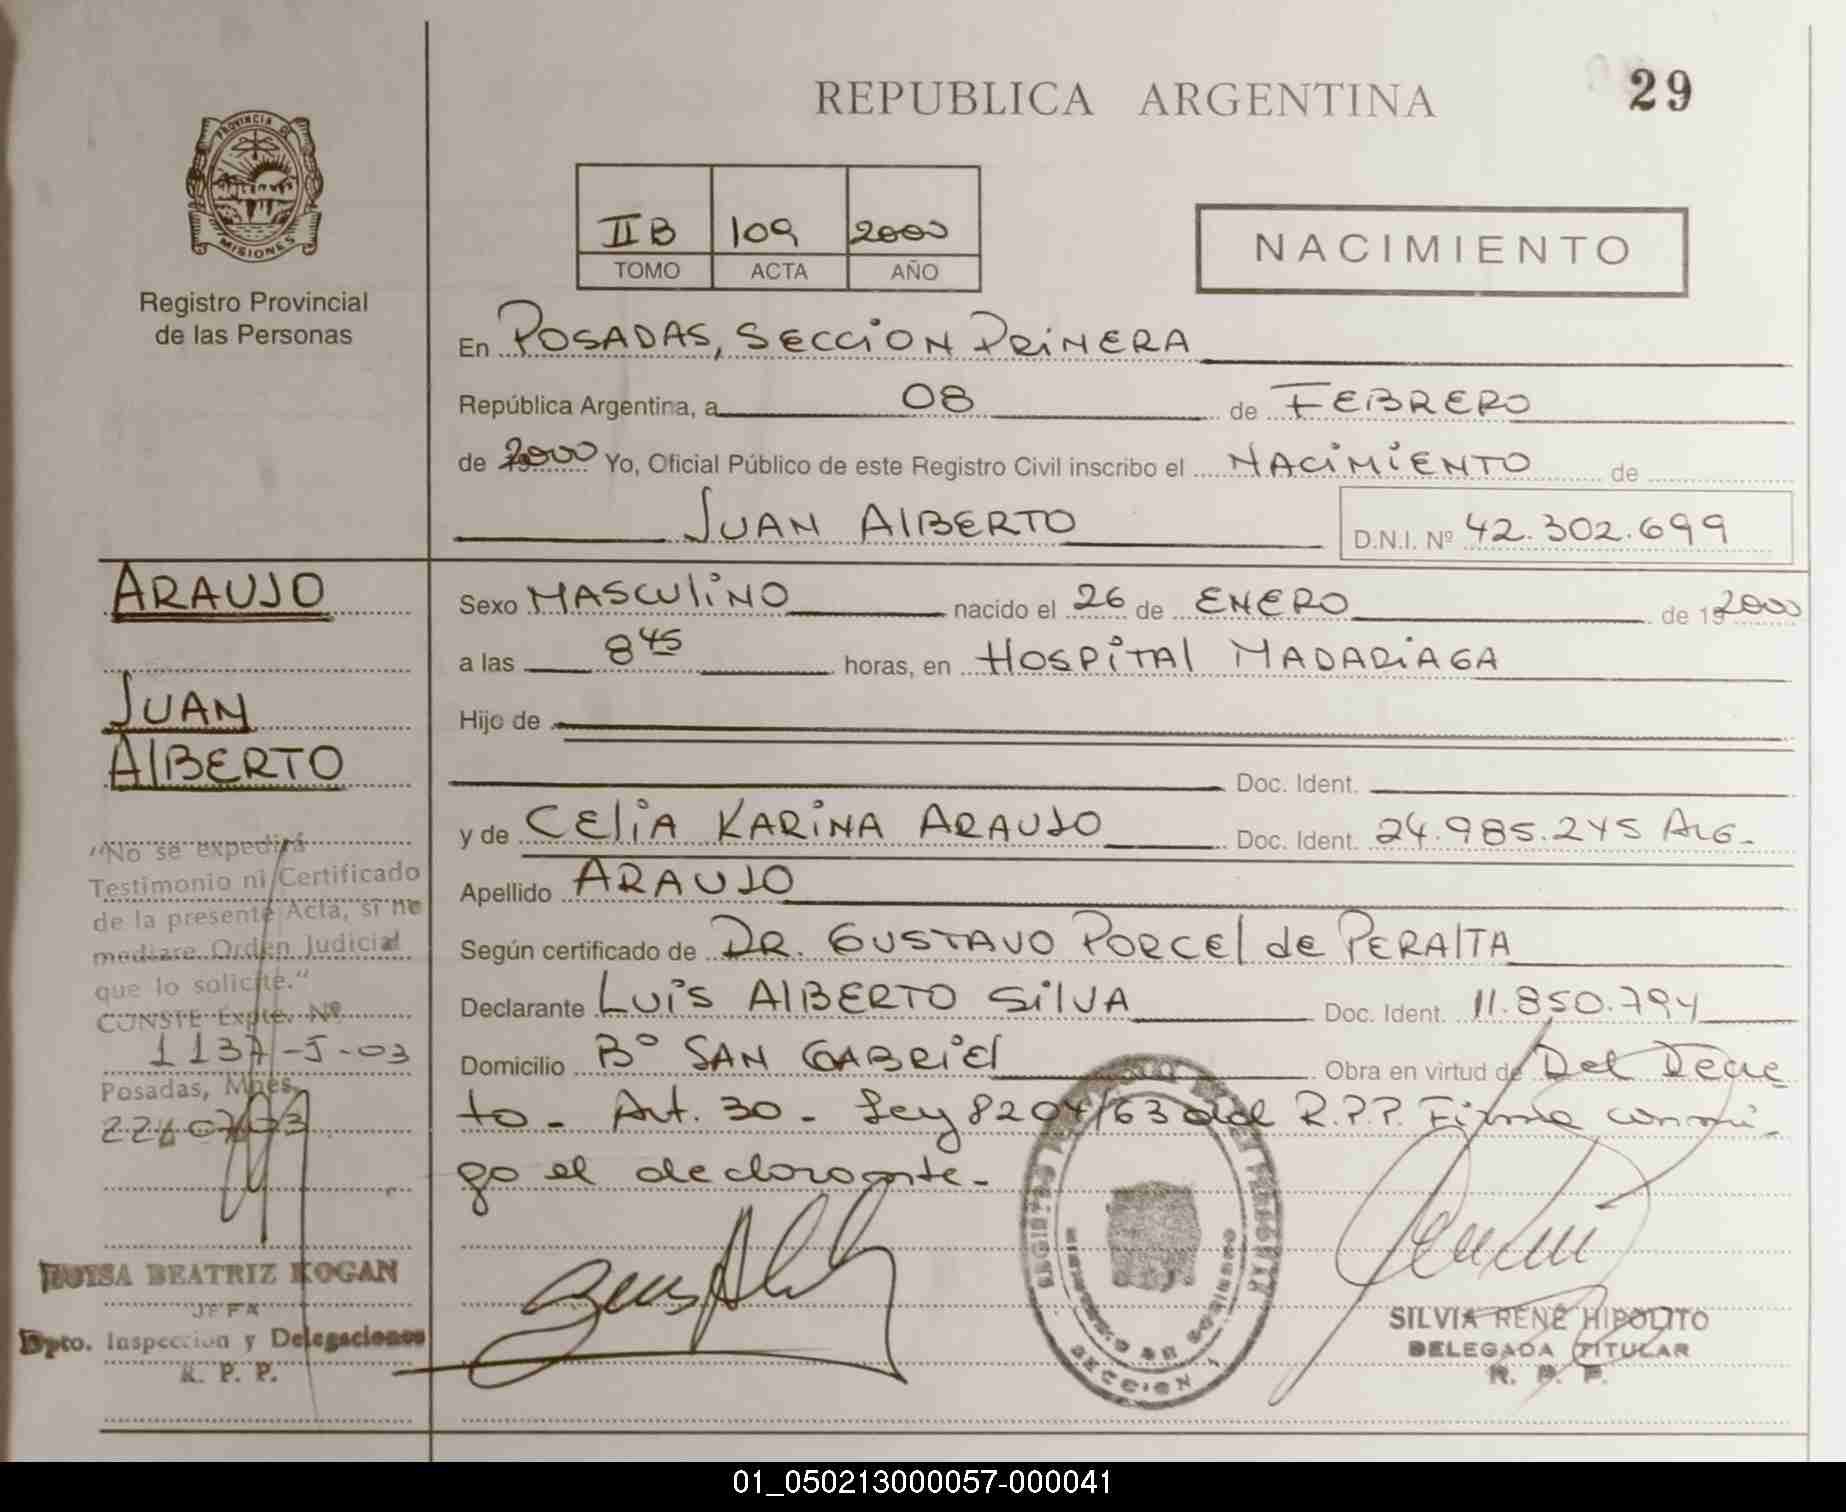 REPUBLICA ARGENTINA
29
PROVINCIA DE
MISIONES
Registro Provincial
de las Personas
II B 109 2000
TOMO ACTA AÑO
NACIMIENTO
En POSADAS, SECCION PRIMERA
República Argentina, a 08 de FEBRERO
de 2000 Yo, Oficial Público de este Registro Civil inscribo el NACIMIENTO de
JUAN ALBERTO D.N.I. Nº 42.302.699
ARAUJO
JUAN
ALBERTO
Sexo MASCULINO nacido el 26 de ENERO de 192000
a las 8 45 horas, en HOSPITAL MADARIAGA
Hijo de
Doc. Ident.
y de CELIA KARINA ARAUJO Doc. Ident. 24.985.245 ARG.
Apellido ARAUJO
Según certificado de DR. GUSTAVO PORCEL de PERALTA
Declarante LUIS ALBERTO SILVA Doc. Ident. 11.850.794
Domicilio Bº SAN GABRIEL Obra en virtud de Del Decre
to - Art. 30 - Ley 8204/63 del R.P.P. Firma conmi-
go el declarante.-
"No se expedirá
Testimonio ni Certificado
de la presente Acta, si no
mediare Orden Judicial
que lo solicite."
CONSTE Expte. Nº
1137-J-03
Posadas, Mnes,
LUISA BEATRIZ KOGAN
JEFA
Dpto. Inspección y Delegaciones
R. P. P.
SECCION 1
SILVIA RENÉ HIPOLITO
DELEGADA TITULAR
R. P. P.
01_050213000057-000041